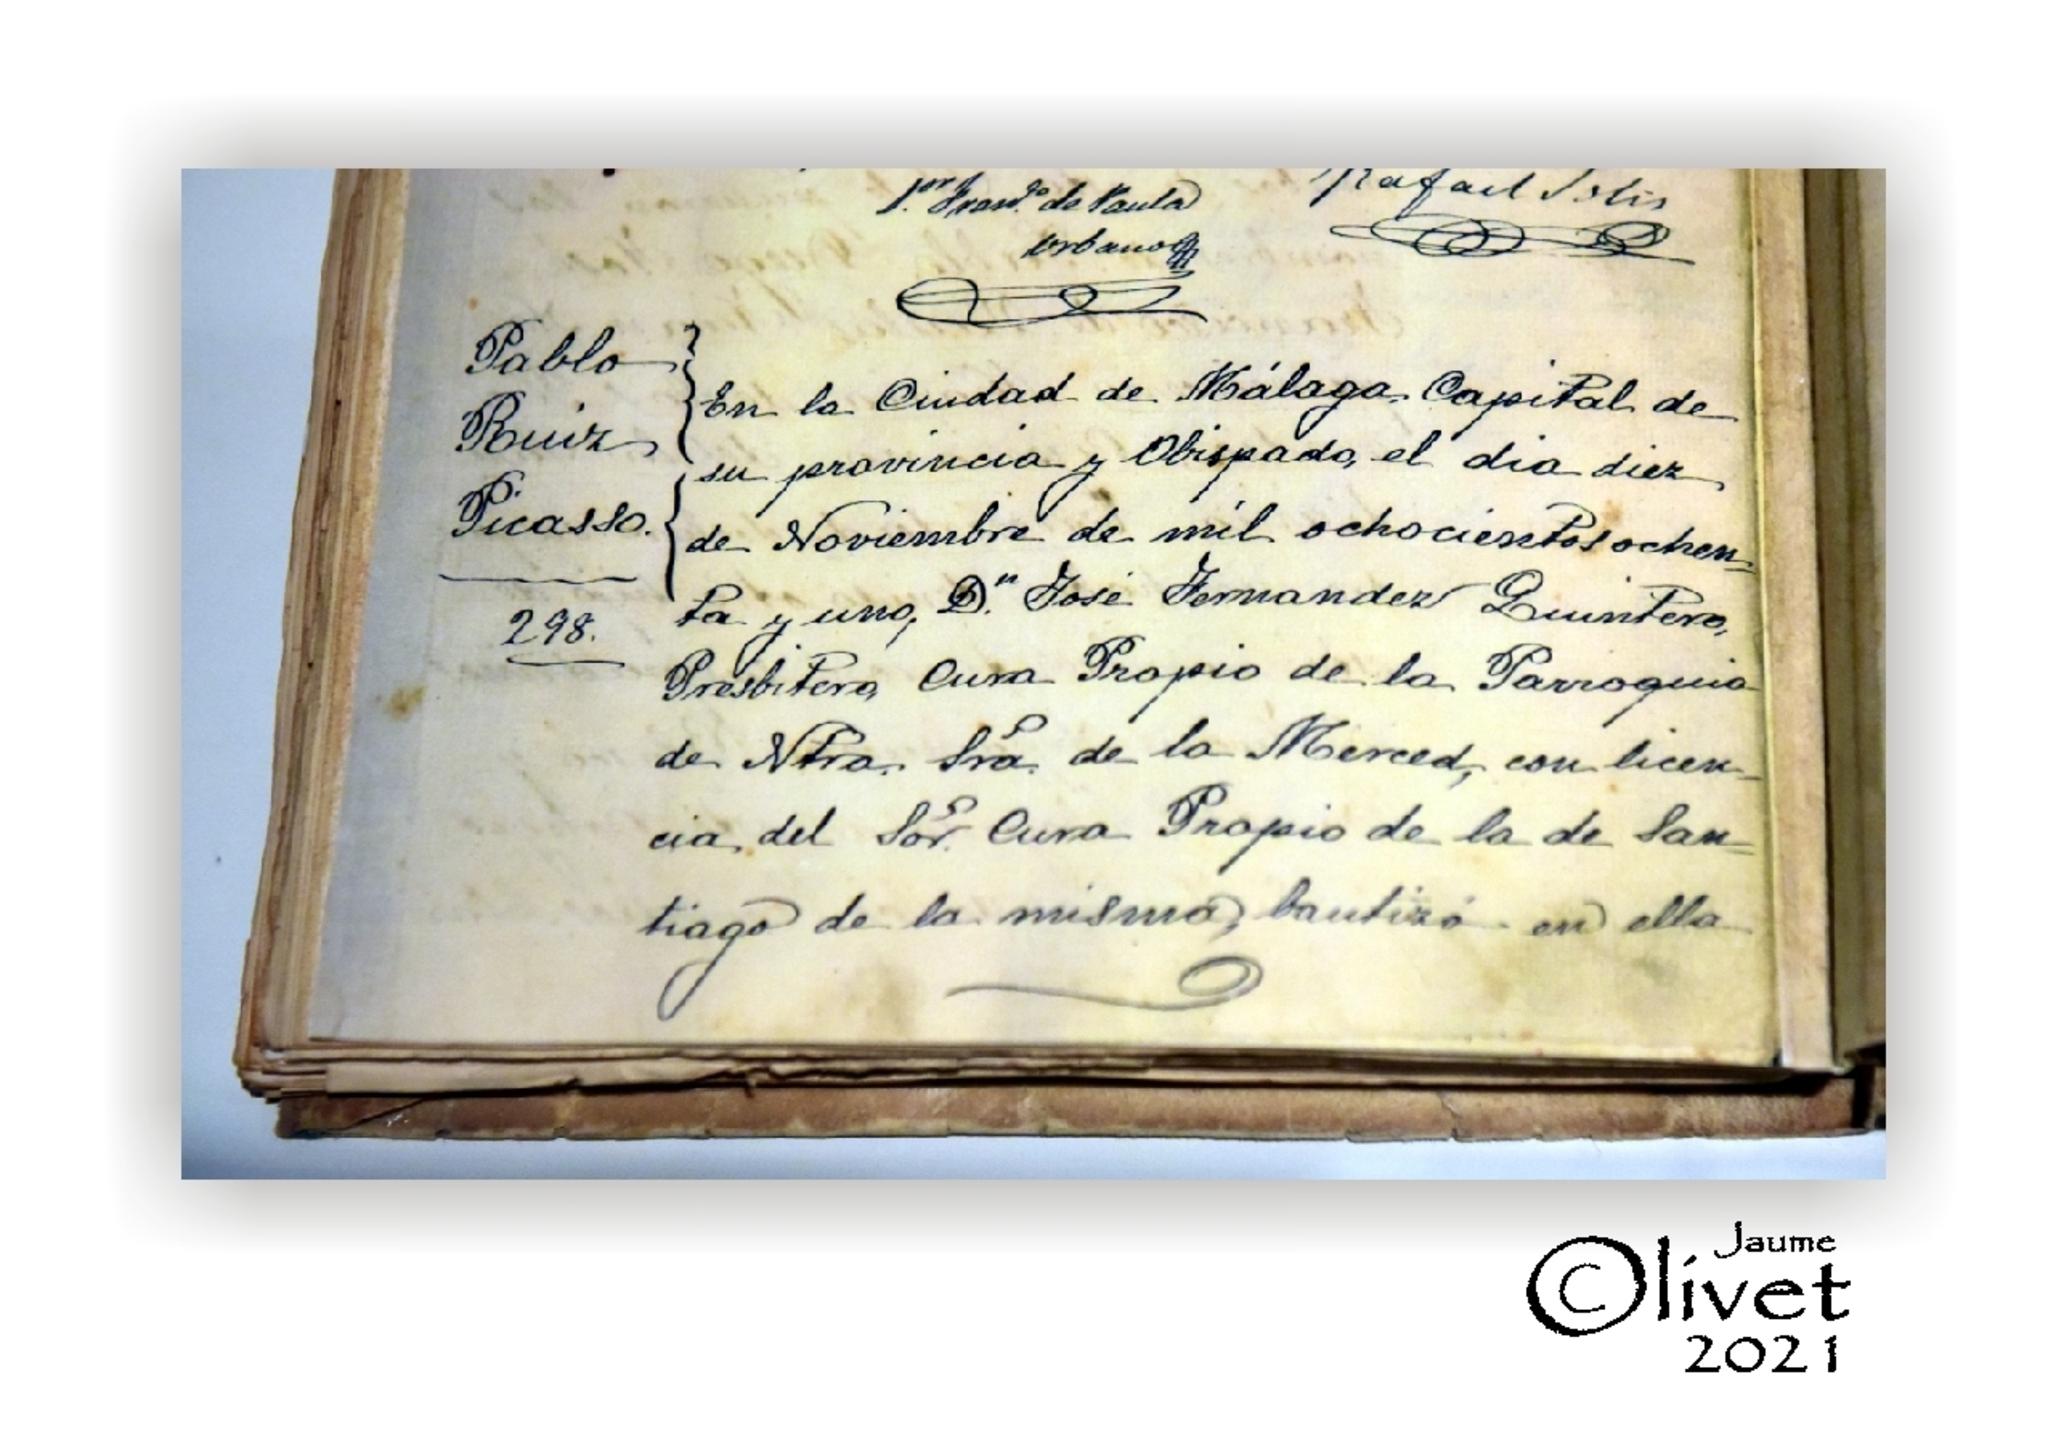 Franco. de Paula
Urbano
Rafael Solis
Pablo
Ruiz
Picasso.
298.
En la Ciudad de Málaga Capital de
su provincia y Obispado, el dia diez
de Noviembre de mil ochocientos ochen-
ta y uno, D.n José Fernandez Quintero,
Presbitero, Cura Propio de la Parroquia
de Ntra. Sra. de la Merced, con licen-
cia del Sor. Cura Propio de la de San-
tiago de la misma, bautizó en ella
Jaume
©Olivet
2021